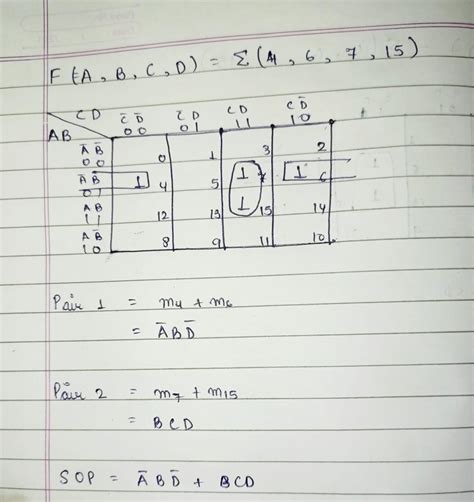 F(A, B, C, D) = Σ(4, 6, 7, 15)
CD C̅D̅ C̅D CD CD̅
AB 00 01 11 10
A̅B̅ 00 0 1 3 2
A̅B 01 1 4 5 1 7 1 6
AB 11 12 13 1 15 14
AB̅ 10 8 9 11 10
Pair 1 = m4 + m6
= A̅BD̅
Pair 2 = m7 + m15
= BCD
SOP = A̅BD̅ + BCD